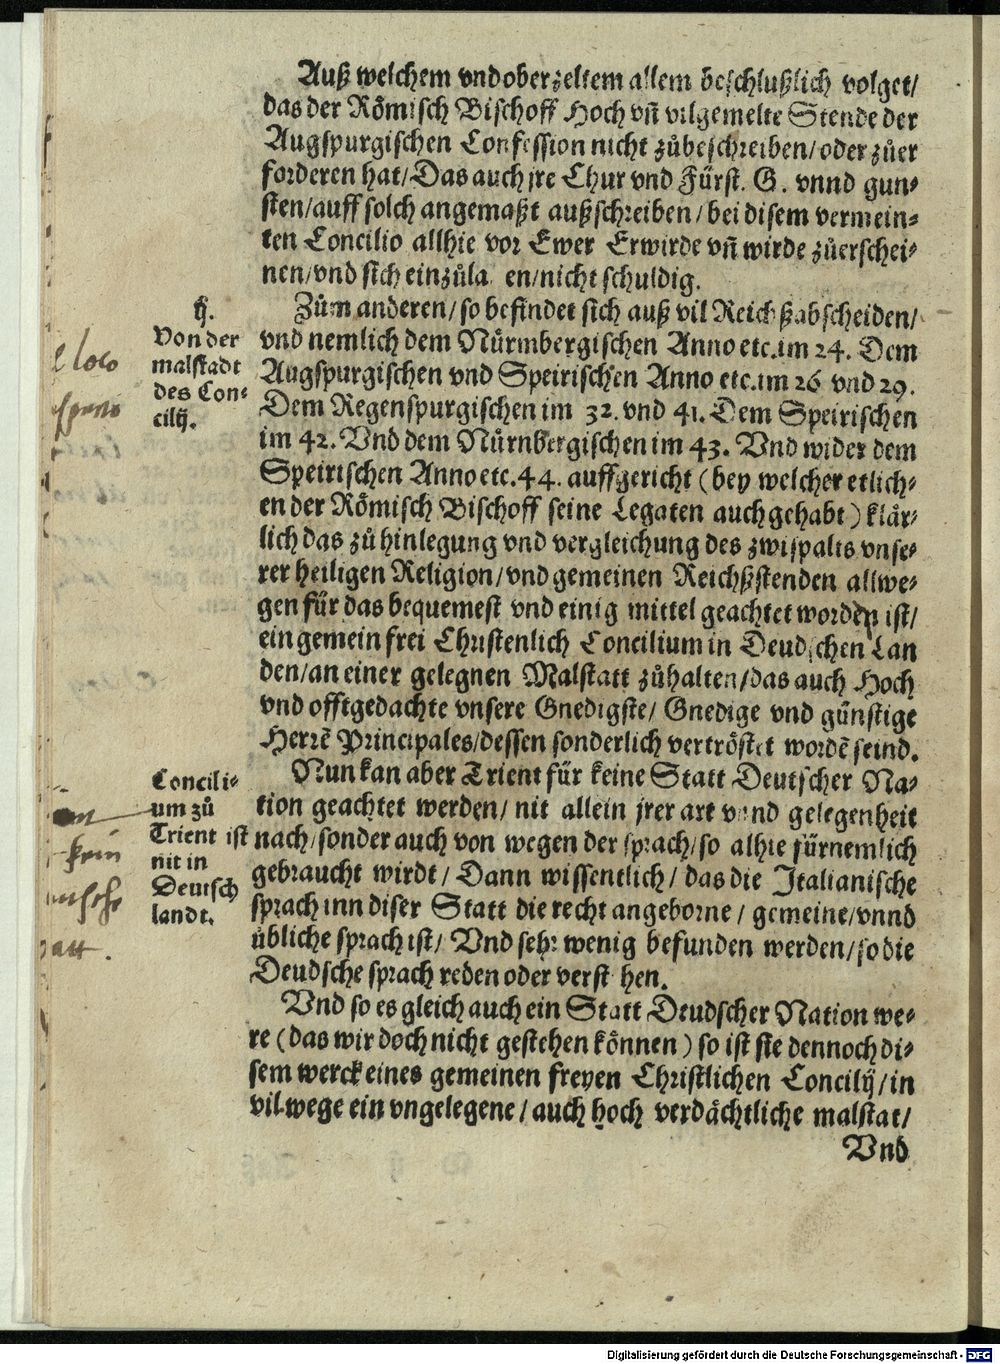 Auß welchem vnd oberzeltem allem beschlußlich volget/
das der Römisch Bischoff Hoch vn̄ vilgemelte Stende der
Augspurgischen Confession nicht zůbeschreiben/oder zůer
forderen hat/Das auch jre Chur vnd Fürst. G. vnnd gun-
sten/auff solch angemaßt außschreiben/bei disem vermein-
ten Concilio allhie vor Ewer Erwirde vn̄ wirde zůerschei-
nen/vnd sich einzůla en/nicht schuldig.
ij.
Von der
malstadt
des Con-
cilij.
Zům anderen/so befindet sich auß vil Reichßabscheiden/
vnd nemlich dem Nürmbergischen Anno etc.im 24. Dem
Augspurgischen vnd Speirischen Anno etc.im 26 vnd 29.
Dem Regenspurgischen im 32. vnd 41. Dem Speirischen
im 42. Vnd dem Nürnbergischen im 43. Vnd wider dem
Speirischen Anno etc. 44. auffgericht (bey welcher etlich-
en der Römisch Bischoff seine Legaten auch gehabt) klär-
lich das zů hinlegung vnd vergleichung des zwispalts vnse-
rer heiligen Religion/vnd gemeinen Reichßstenden allwe-
gen für das bequemest vnd einig mittel geachtet worden ist/
ein gemein frei Christenlich Concilium in Deudschen Lan
den/an einer gelegnen Malstatt zůhalten/das auch Hoch
vnd offtgedachte vnsere Gnedigste/ Gnedige vnd günstige
Herrē Principales/dessen sonderlich vertröstet wordē seind.
Concili-
um zů
Trient ist
nit in
Deutsch
landt.
Nun kan aber Trient für keine Statt Deutscher Na-
tion geachtet werden/ nit allein jrer art vnnd gelegenheit
nach/sonder auch von wegen der sprach/so alhie fürnemlich
gebraucht wirdt/ Dann wissentlich/ das die Italianische
sprach inn diser Statt die recht angeborne/ gemeine/vnnd
übliche sprach ist/ Vnd sehr wenig befunden werden/so die
Deudsche sprach reden oder verst hen.
Vnd so es gleich auch ein Statt Deudscher Nation we-
re (das wir doch nicht gestehen können) so ist sie dennoch di-
sem werck eines gemeinen freyen Christlichen Concilij/in
vil wege ein vngelegene/auch hoch verdächtliche malstat/
Vnd
loco
kein
Digitalisierung gefördert durch die Deutsche Forschungsgemeinschaft - DFG